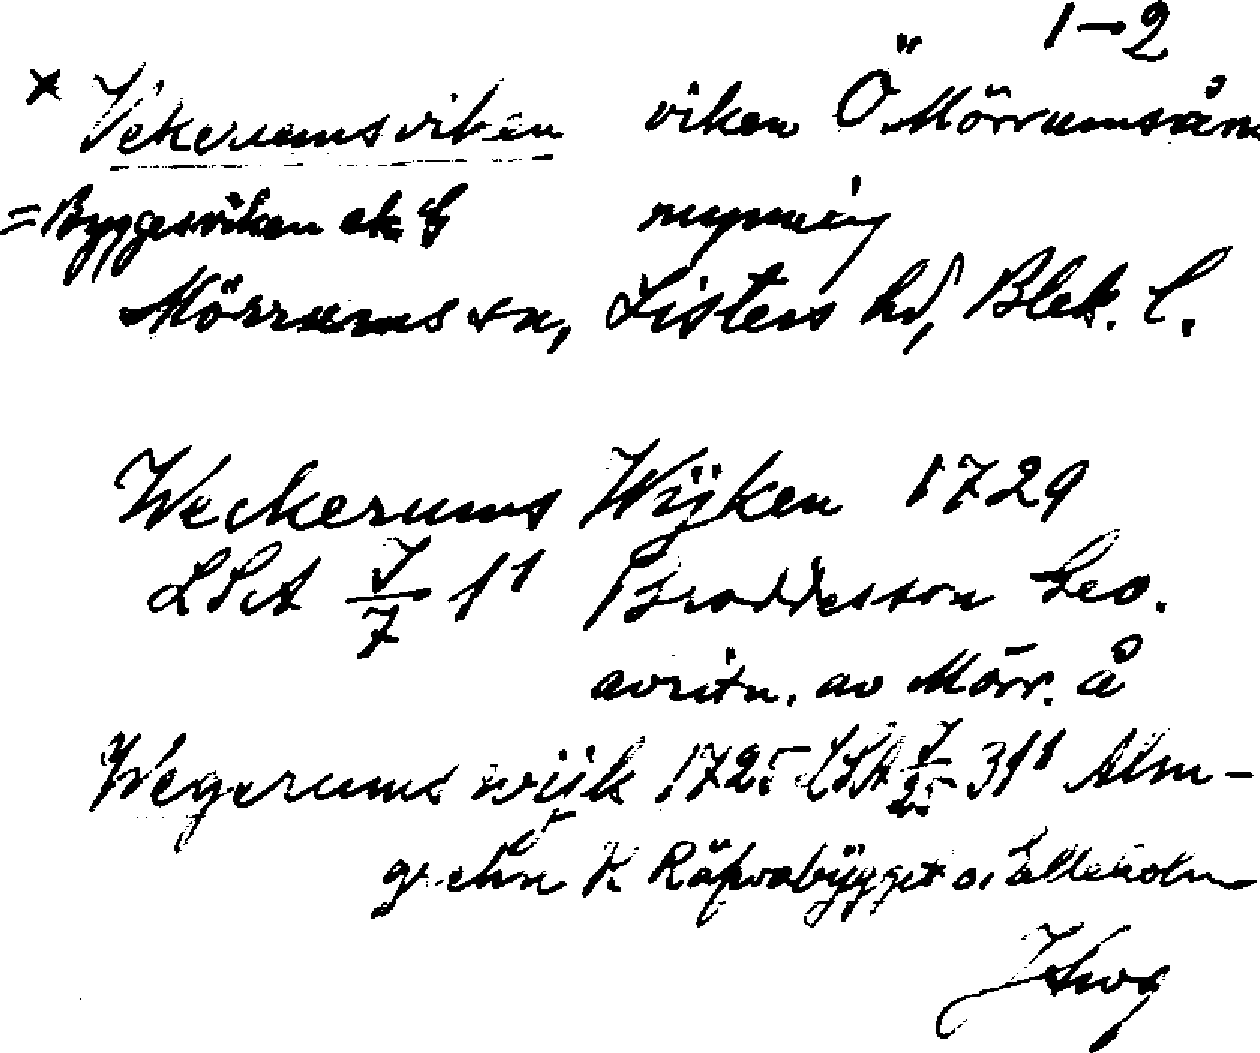 1–2
× Vekerumsviken viken Ö Mörrumsåns
= Byggesviken ek bl mynning
Mörrums sn, Listers hd, Blek. l.
Weckerums Wijken 1729
LSA J/7 11 Broddesson Geo.
avritn. av Mörr. å
Wegerums wijk 1725 LSA J/25 311 Alm-
grehn K Räfvabÿgget o. Elleholm